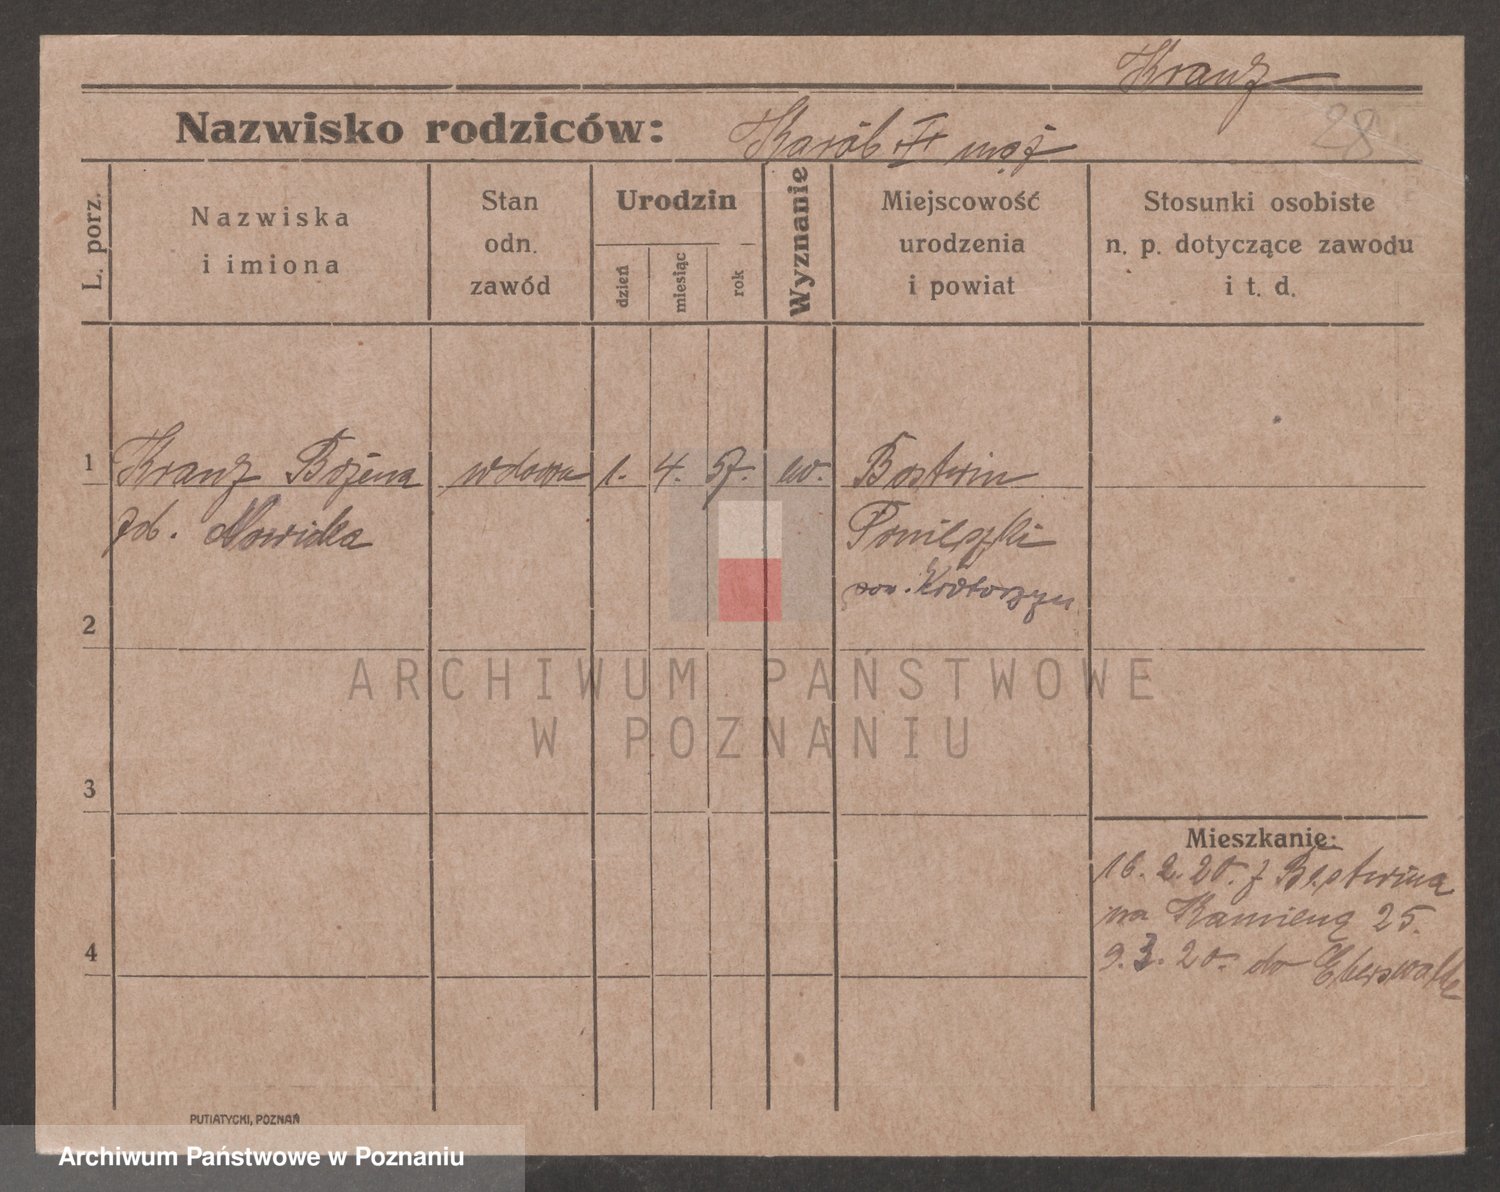 Kranz
28
Nazwisko rodziców: Karól II mąż
L. porz.
Nazwiska
i imiona
Stan
odn.
zawód
Urodzin
dzień
miesiąc
rok
Wyznanie
Miejscowość
urodzenia
i powiat
Stosunki osobiste
n. p. dotyczące zawodu
i t. d.
1 Kranz Bożena wdowa 1. 4. 57. ew. Bestwin
Nowicka
pow. Krotoszyn
2
ARCHIWUM PAŃSTWOWE
W POZNANIU
3
Mieszkanie:
16. 2. 20. z Bestwina
na Kamieną 25.
4
9. 3. 20. do Eberswalde
PUTIATYCKI, POZNAŃ
Archiwum Państwowe w Poznaniu